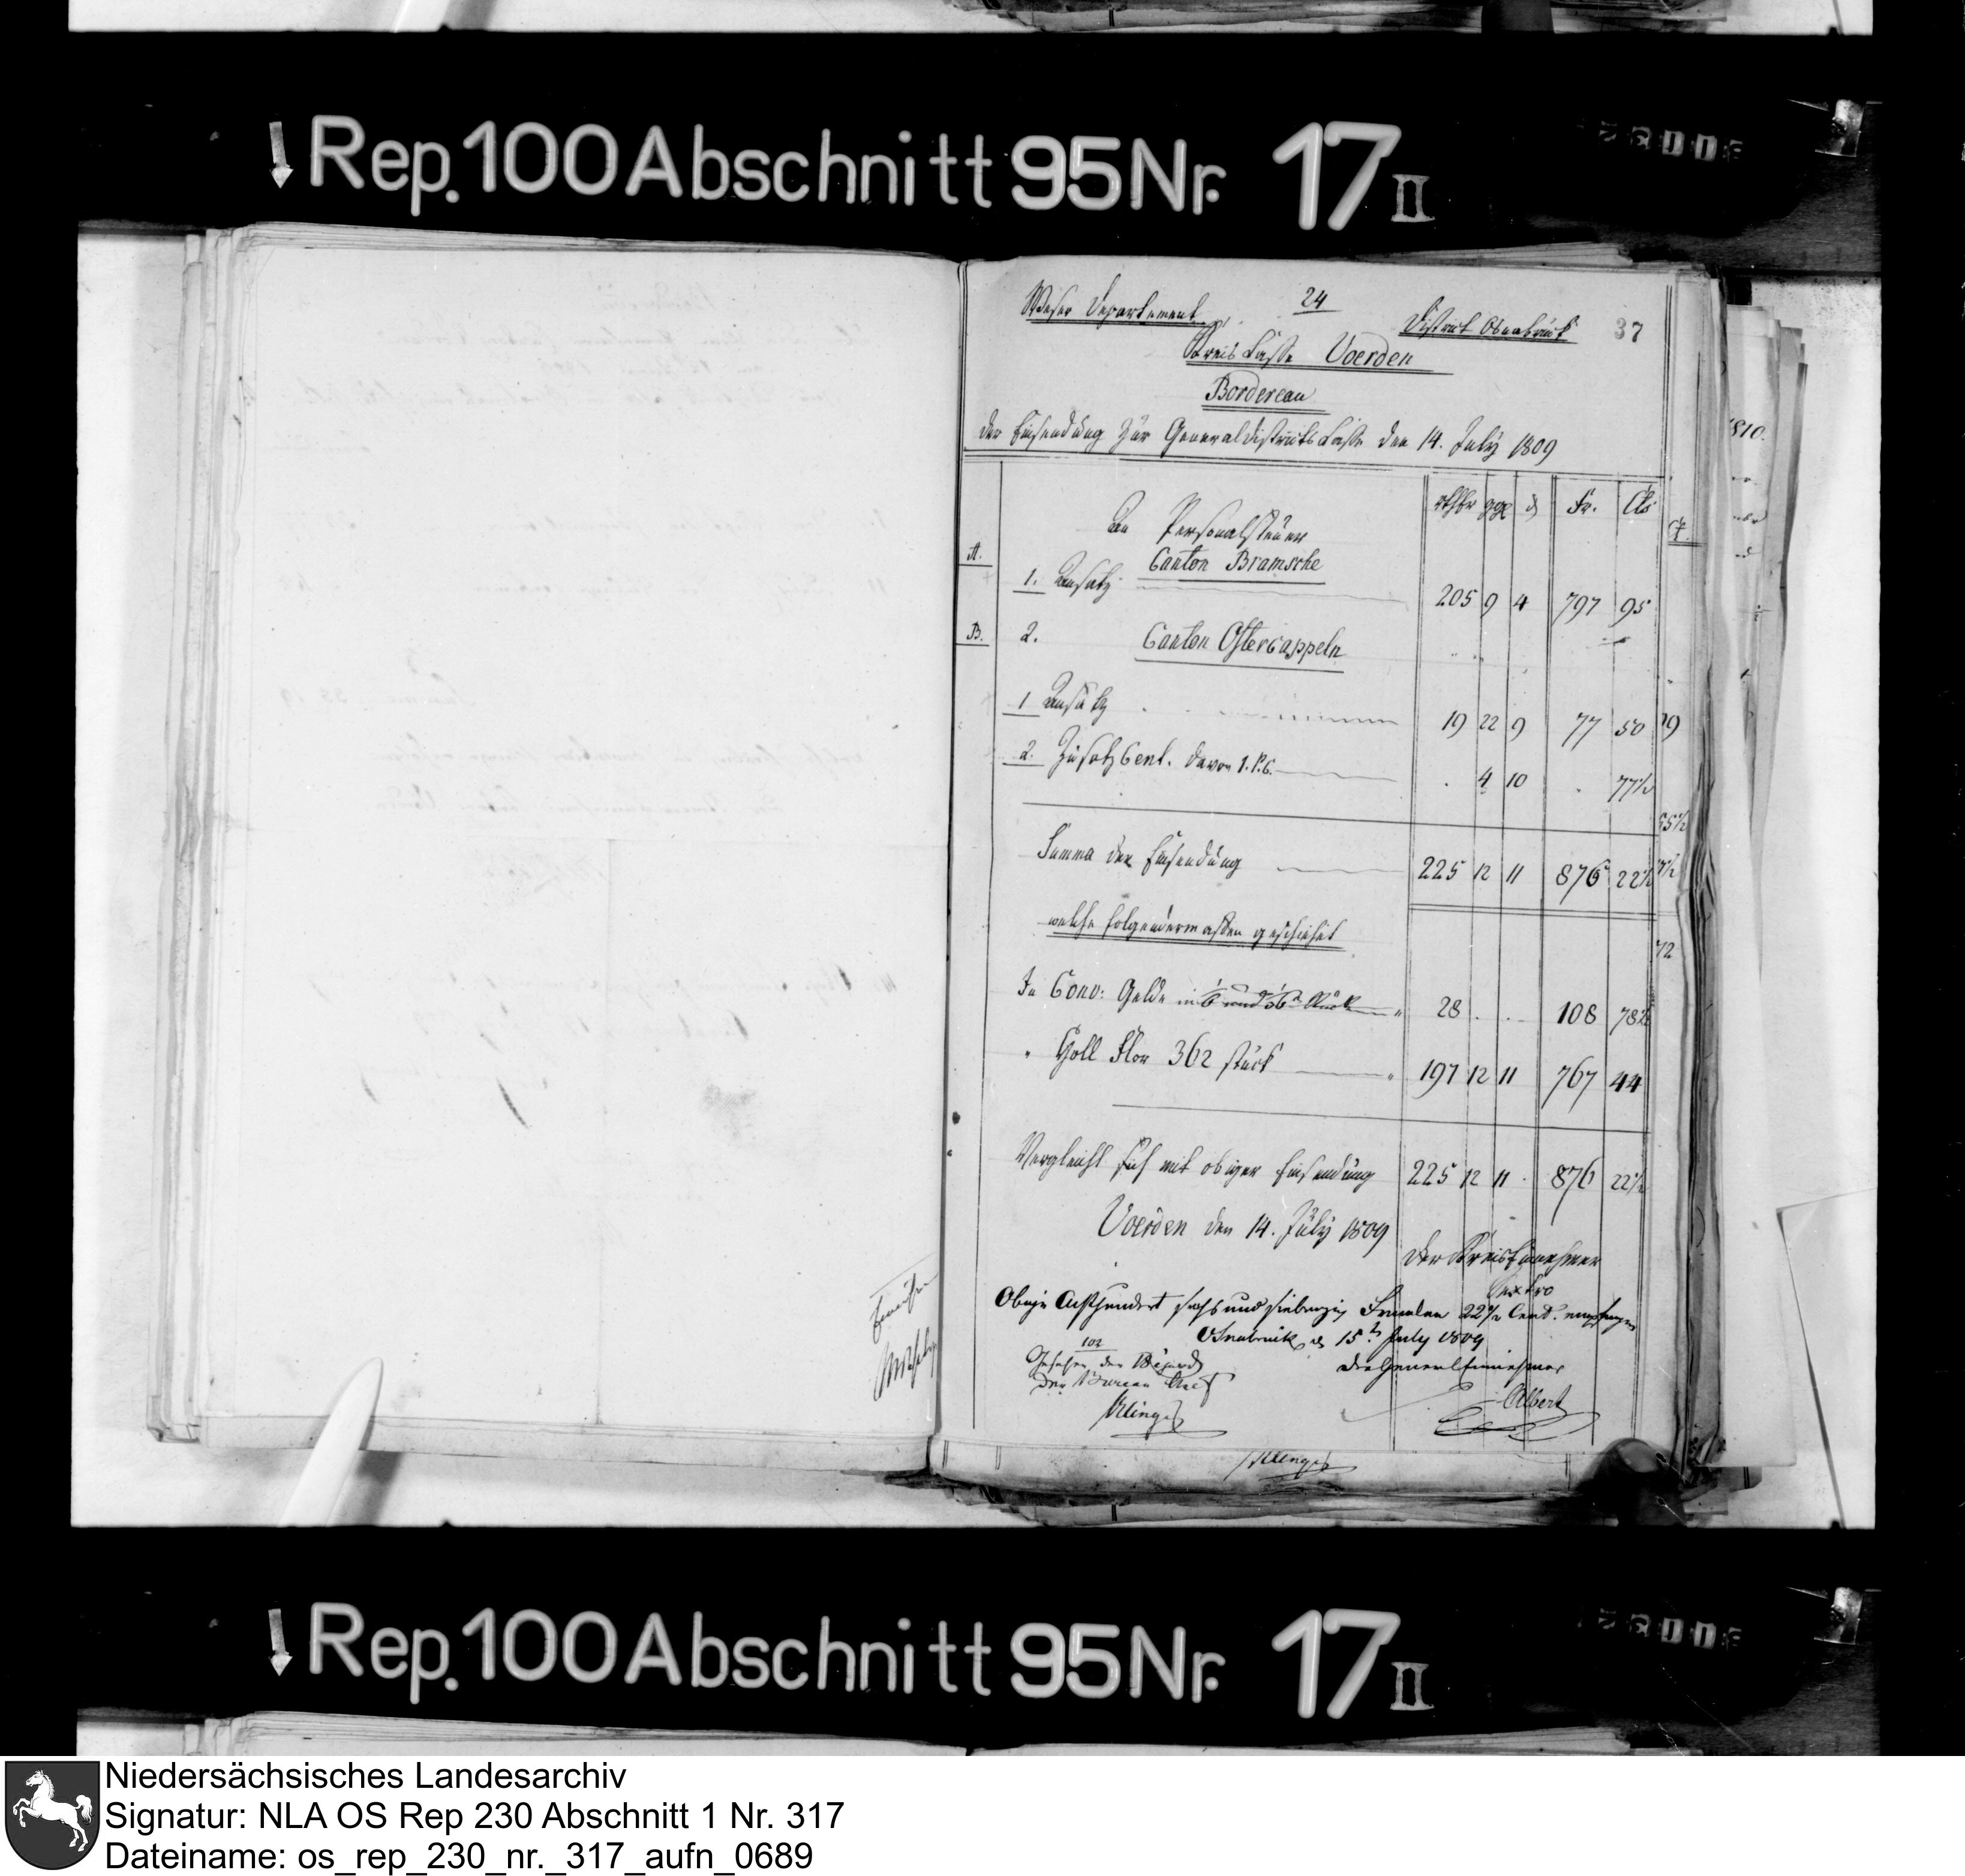 Rep. 100 Abschnitt 95 Nr. 17 II
24
Weser Departement
District Osnabrück
37
Kreis Casse Voerden
Bordereau
der Einsendung zur Generaldistricts Casse den 14. July 1809
rthlr ggl d Fr. Cts
An Personalsteuer
A. Canton Bramsche
1. Ansatz 205 9 4 797 95
B. 2. Canton Ostercappeln
1 Ansatz 19 22 9 77 50
2. Zusatz Cent. davon 1. P.C. 4 10 77½
Summa der Einsendung 225 12 11 876 22½
welche folgendermassen geschiehet
In Conv: Gelde 28 108 78½
" Holl Flor 362 stück 197 12 11 767 44
Vergleicht sich mit obiger Einsendung 225 12 11 876 22½
Voerden den 14. July 1809
Der Kreis Einnehmer
Obige Achthundert sechs und siebenzig Franken 22½ Cent. empfangen
Osnabrück d 15t July 1809
102
Gesehen der
Der Bureau Chef
Der General Einnehmer
Albert
Klinge
Klinge
1810.
Rep. 100 Abschnitt 95 Nr. 17 II
Niedersächsisches Landesarchiv
Signatur: NLA OS Rep 230 Abschnitt 1 Nr. 317
Dateiname: os_rep_230_nr._317_aufn_0689